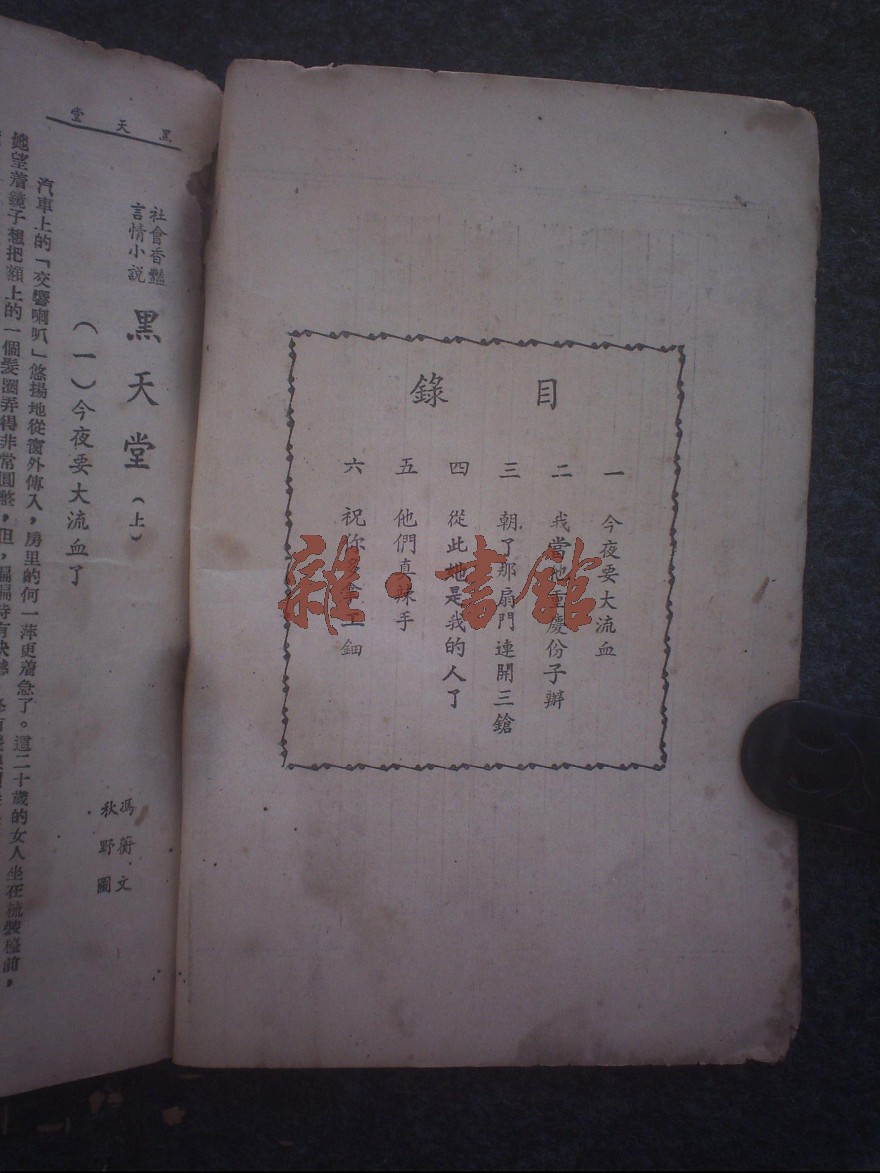 目錄
一 今夜要大流血
二 我當他重慶份子辦
三 朝了那扇門連開三鎗
四 從此她是我的人了
五 他們真辣手
六 祝你多拿工鈿
雜·書館
黑天堂
社會香艷
言情小說
黑天堂(上)
馮蘅·文
秋野圖
(一)今夜要大流血了
汽車上的「交響喇叭」悠揚地從窗外傳入,房里的何一萍更着急了。這二十歲的女人坐在梳裝檯前,
她望着鏡子想把額上的一個髮圈弄得非常圓整,但,偏偏